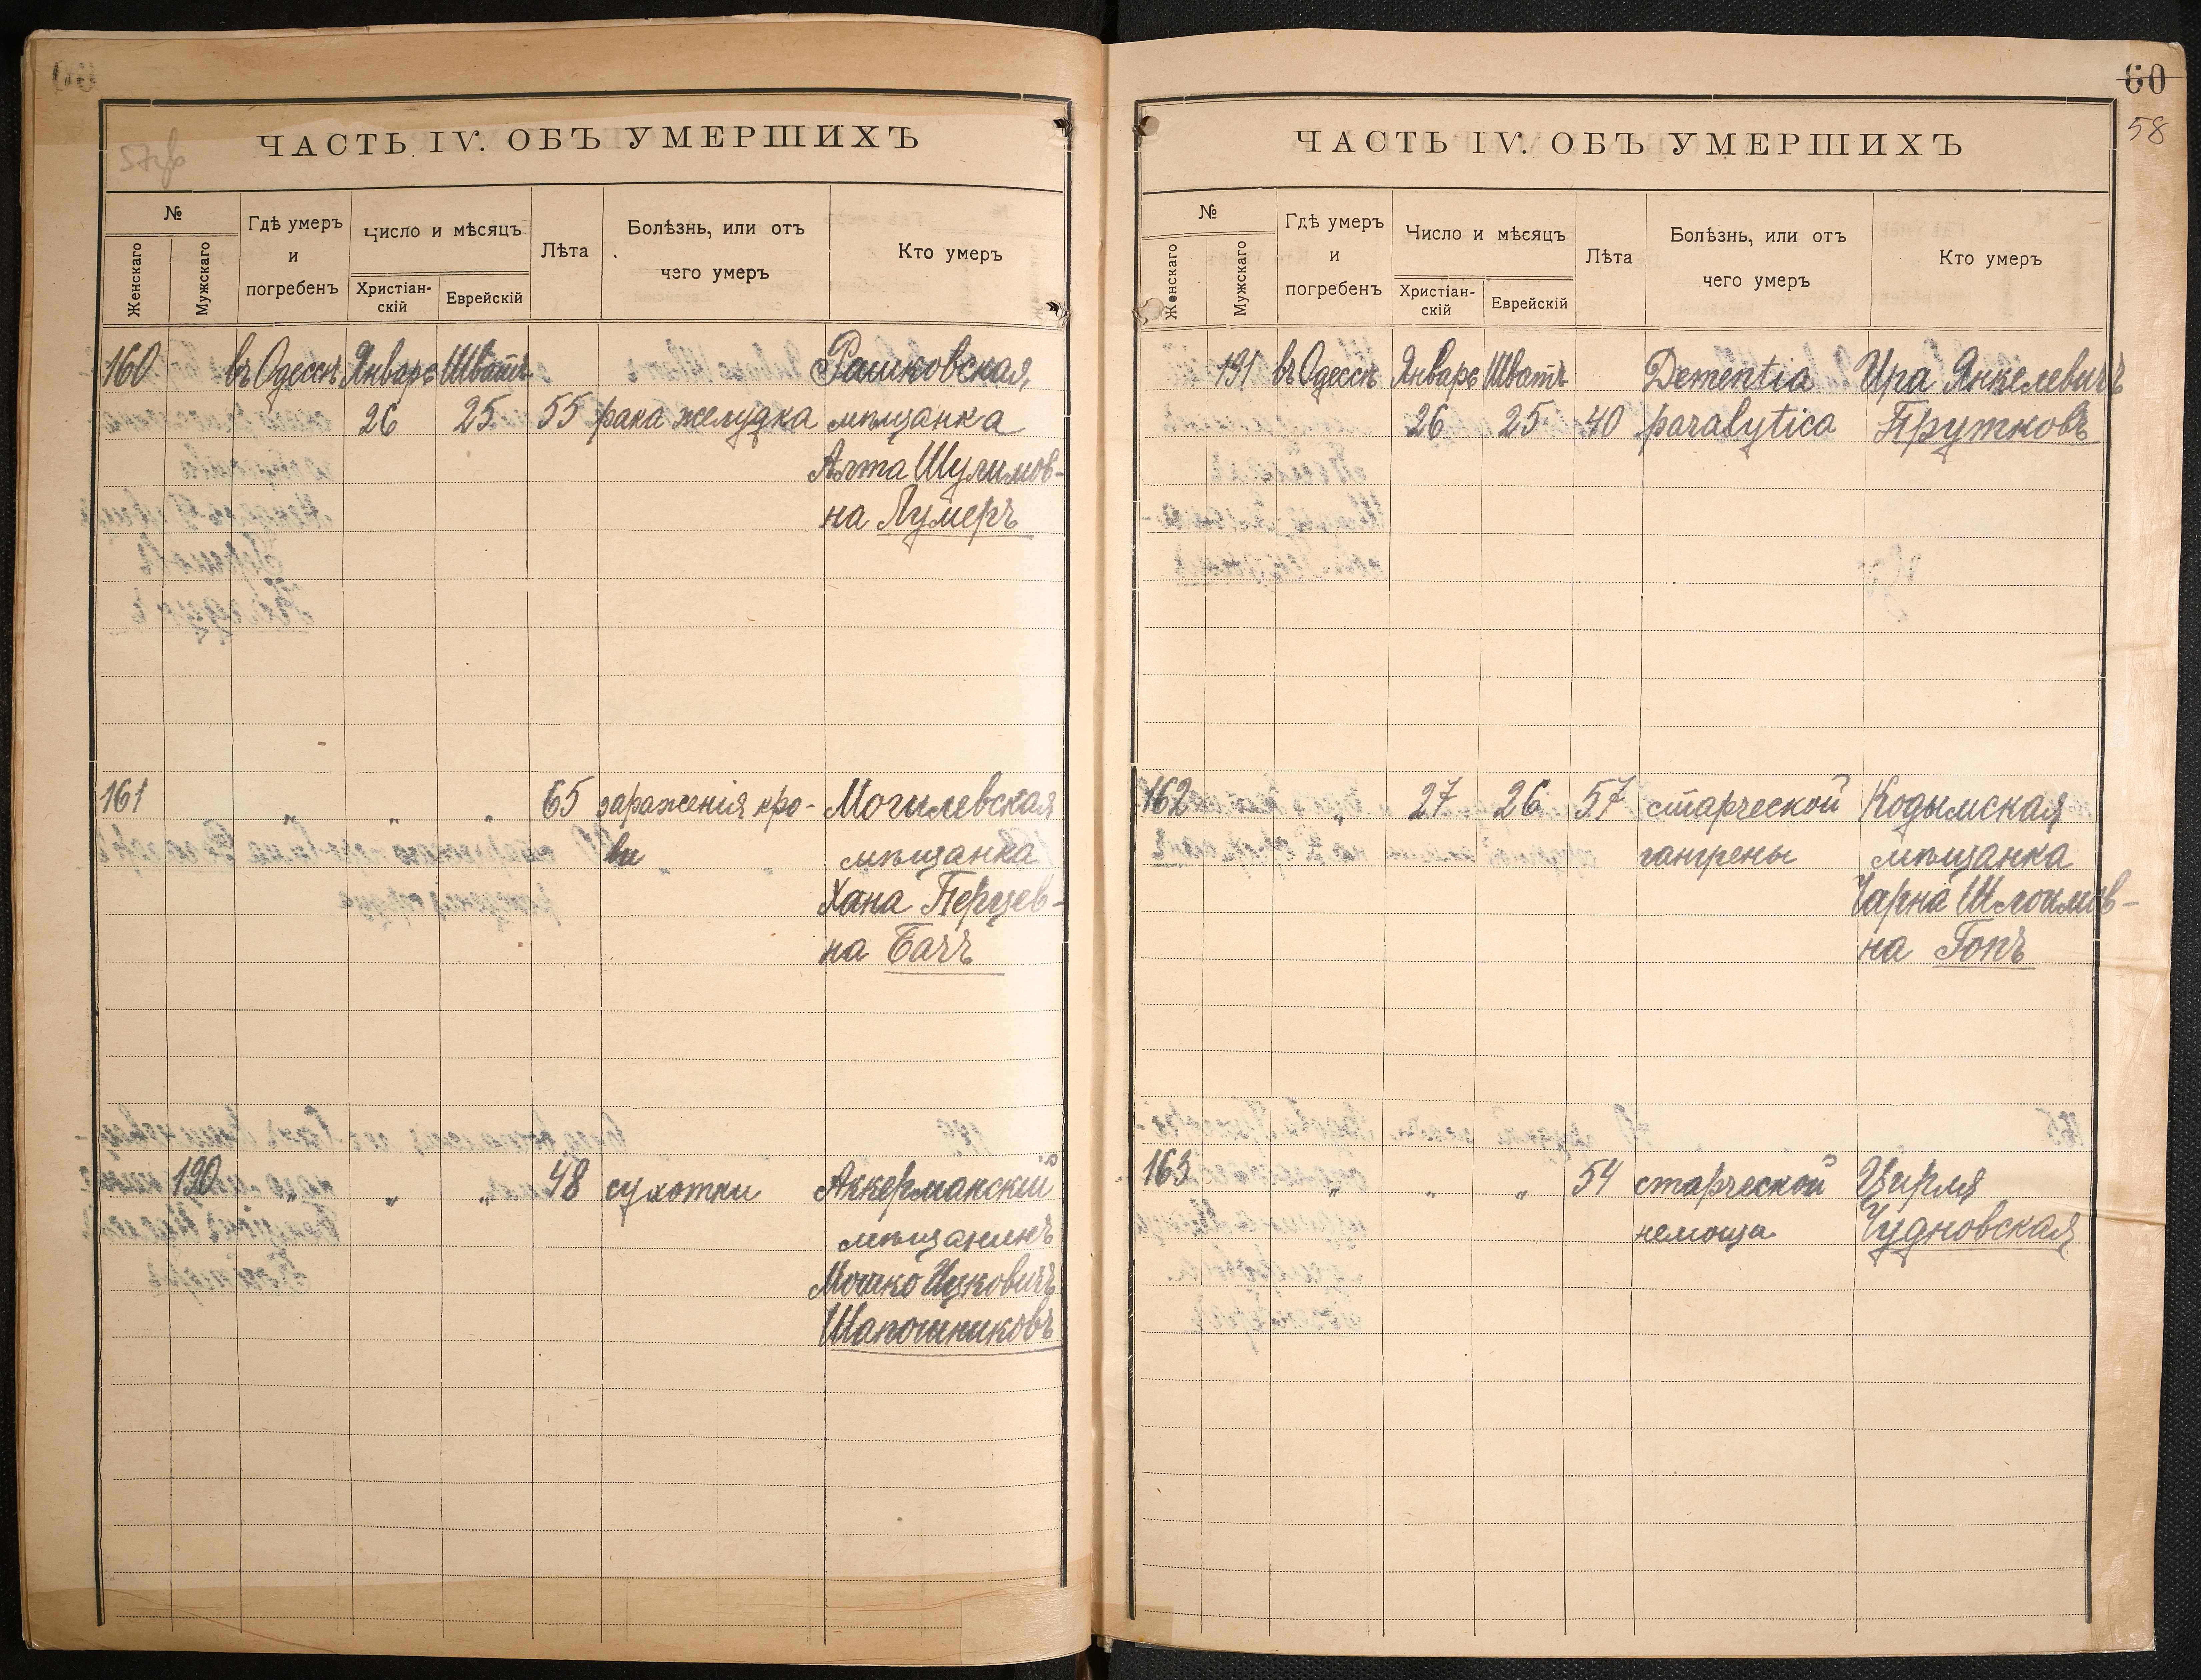 57об
ЧАСТЬ IV. ОБЪ УМЕРШИХЪ
№
Женскаго
Мужскаго
Гдѣ умеръ
и
погребенъ
Число и мѣсяцъ
Христіан-
скій
Еврейскій
Лѣта
Болѣзнь, или отъ
чего умеръ
Кто умеръ
160 въ Одессѣ Январь Шватъ Рашковская,
26 25 55 рака желудка мѣщанка
Алта Шулимов-
на Лумеръ
161 „ „ „ 65 зараженія кро- Могилевская
ви мѣщанка
Хана Перцев-
на Бачъ
190 „ „ „ 48 сухотки Аккерманскій
мѣщанинъ
Мошко Ицковичъ
Шапошниковъ
60
58
ЧАСТЬ IV. ОБЪ УМЕРШИХЪ
№
Женскаго
Мужскаго
Гдѣ умеръ
и
погребенъ
Число и мѣсяцъ
Христіан-
скій
Еврейскій
Лѣта
Болѣзнь, или отъ
чего умеръ
Кто умеръ
191 въ Одессѣ Январь Шватъ Dementia Ира Янкелевичъ
26 25 40 paralytica Прутковъ
162 „ 27 26 57 старческой Кодымская
гангрены мѣщанка
Чарна Шлоимов-
на Гопъ
163 „ „ „ 54 старческой Цирля
немощи Чудновская